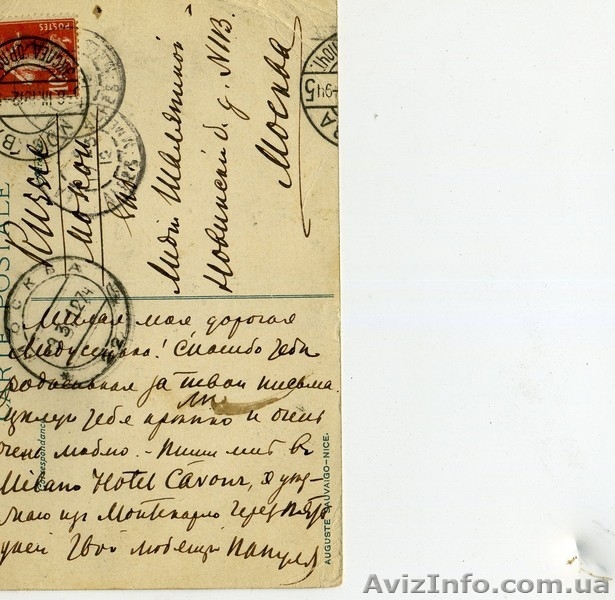 POSTES
CARTE POSTALE
МОСКВА
Russie
Лидии Шаляпиной
Новинский б. д. №113.
Москва
Correspondance
Милая моя дорогая
Лидусенька! Спасибо тебе
родненькая за твои письма.
Целую тебя крепко и очень
очень люблю. - Пиши мне в
Milano Hotel Cavour, я уез-
жаю из Монтекарло через
дней Твой любящий Папуля
AUGUSTE SAUVAIGO-NICE.
AvizInfo.com.ua